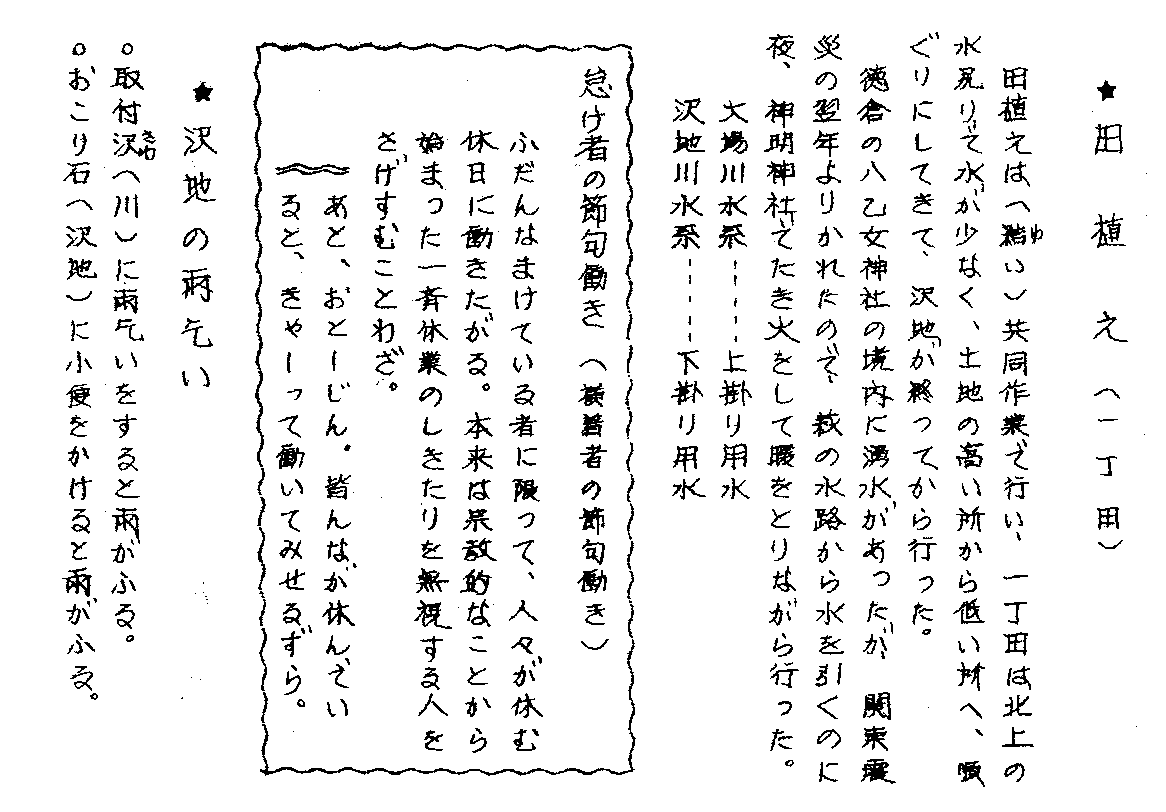 ★田植え(一丁田)
田植えは(結い)共同作業で行い、一丁田は北上の
ゆ
水尻りで水が少なく、土地の高い所から低い所へ、順
ぐりにしてきて、沢地が終ってから行った。
徳倉の八乙女神社の境内に湧水があったが、関東震
災の翌年よりかれたので、萩の水路から水を引くのに
夜、神明神社でたき火をして暖をとりながら行った。
大場川水系-----上掛り用水
沢地川水系-----下掛り用水
怠け者の節句働き(横着者の節句働き)
ふだんなまけている者に限って、人々が休む
休日に働きたがる。本来は呆教的なことから
始まった一斉休業のしきたりを無視する人を
さげすむことわざ。
あと、おとーじん。皆んなが休んでい
ると、きゃーって働いてみせるずら。
★沢地の雨乞い
○取付沢(川)に雨乞いをすると雨がふる。
さわ
○おこり石(沢地)に小便をかけると雨がふる。